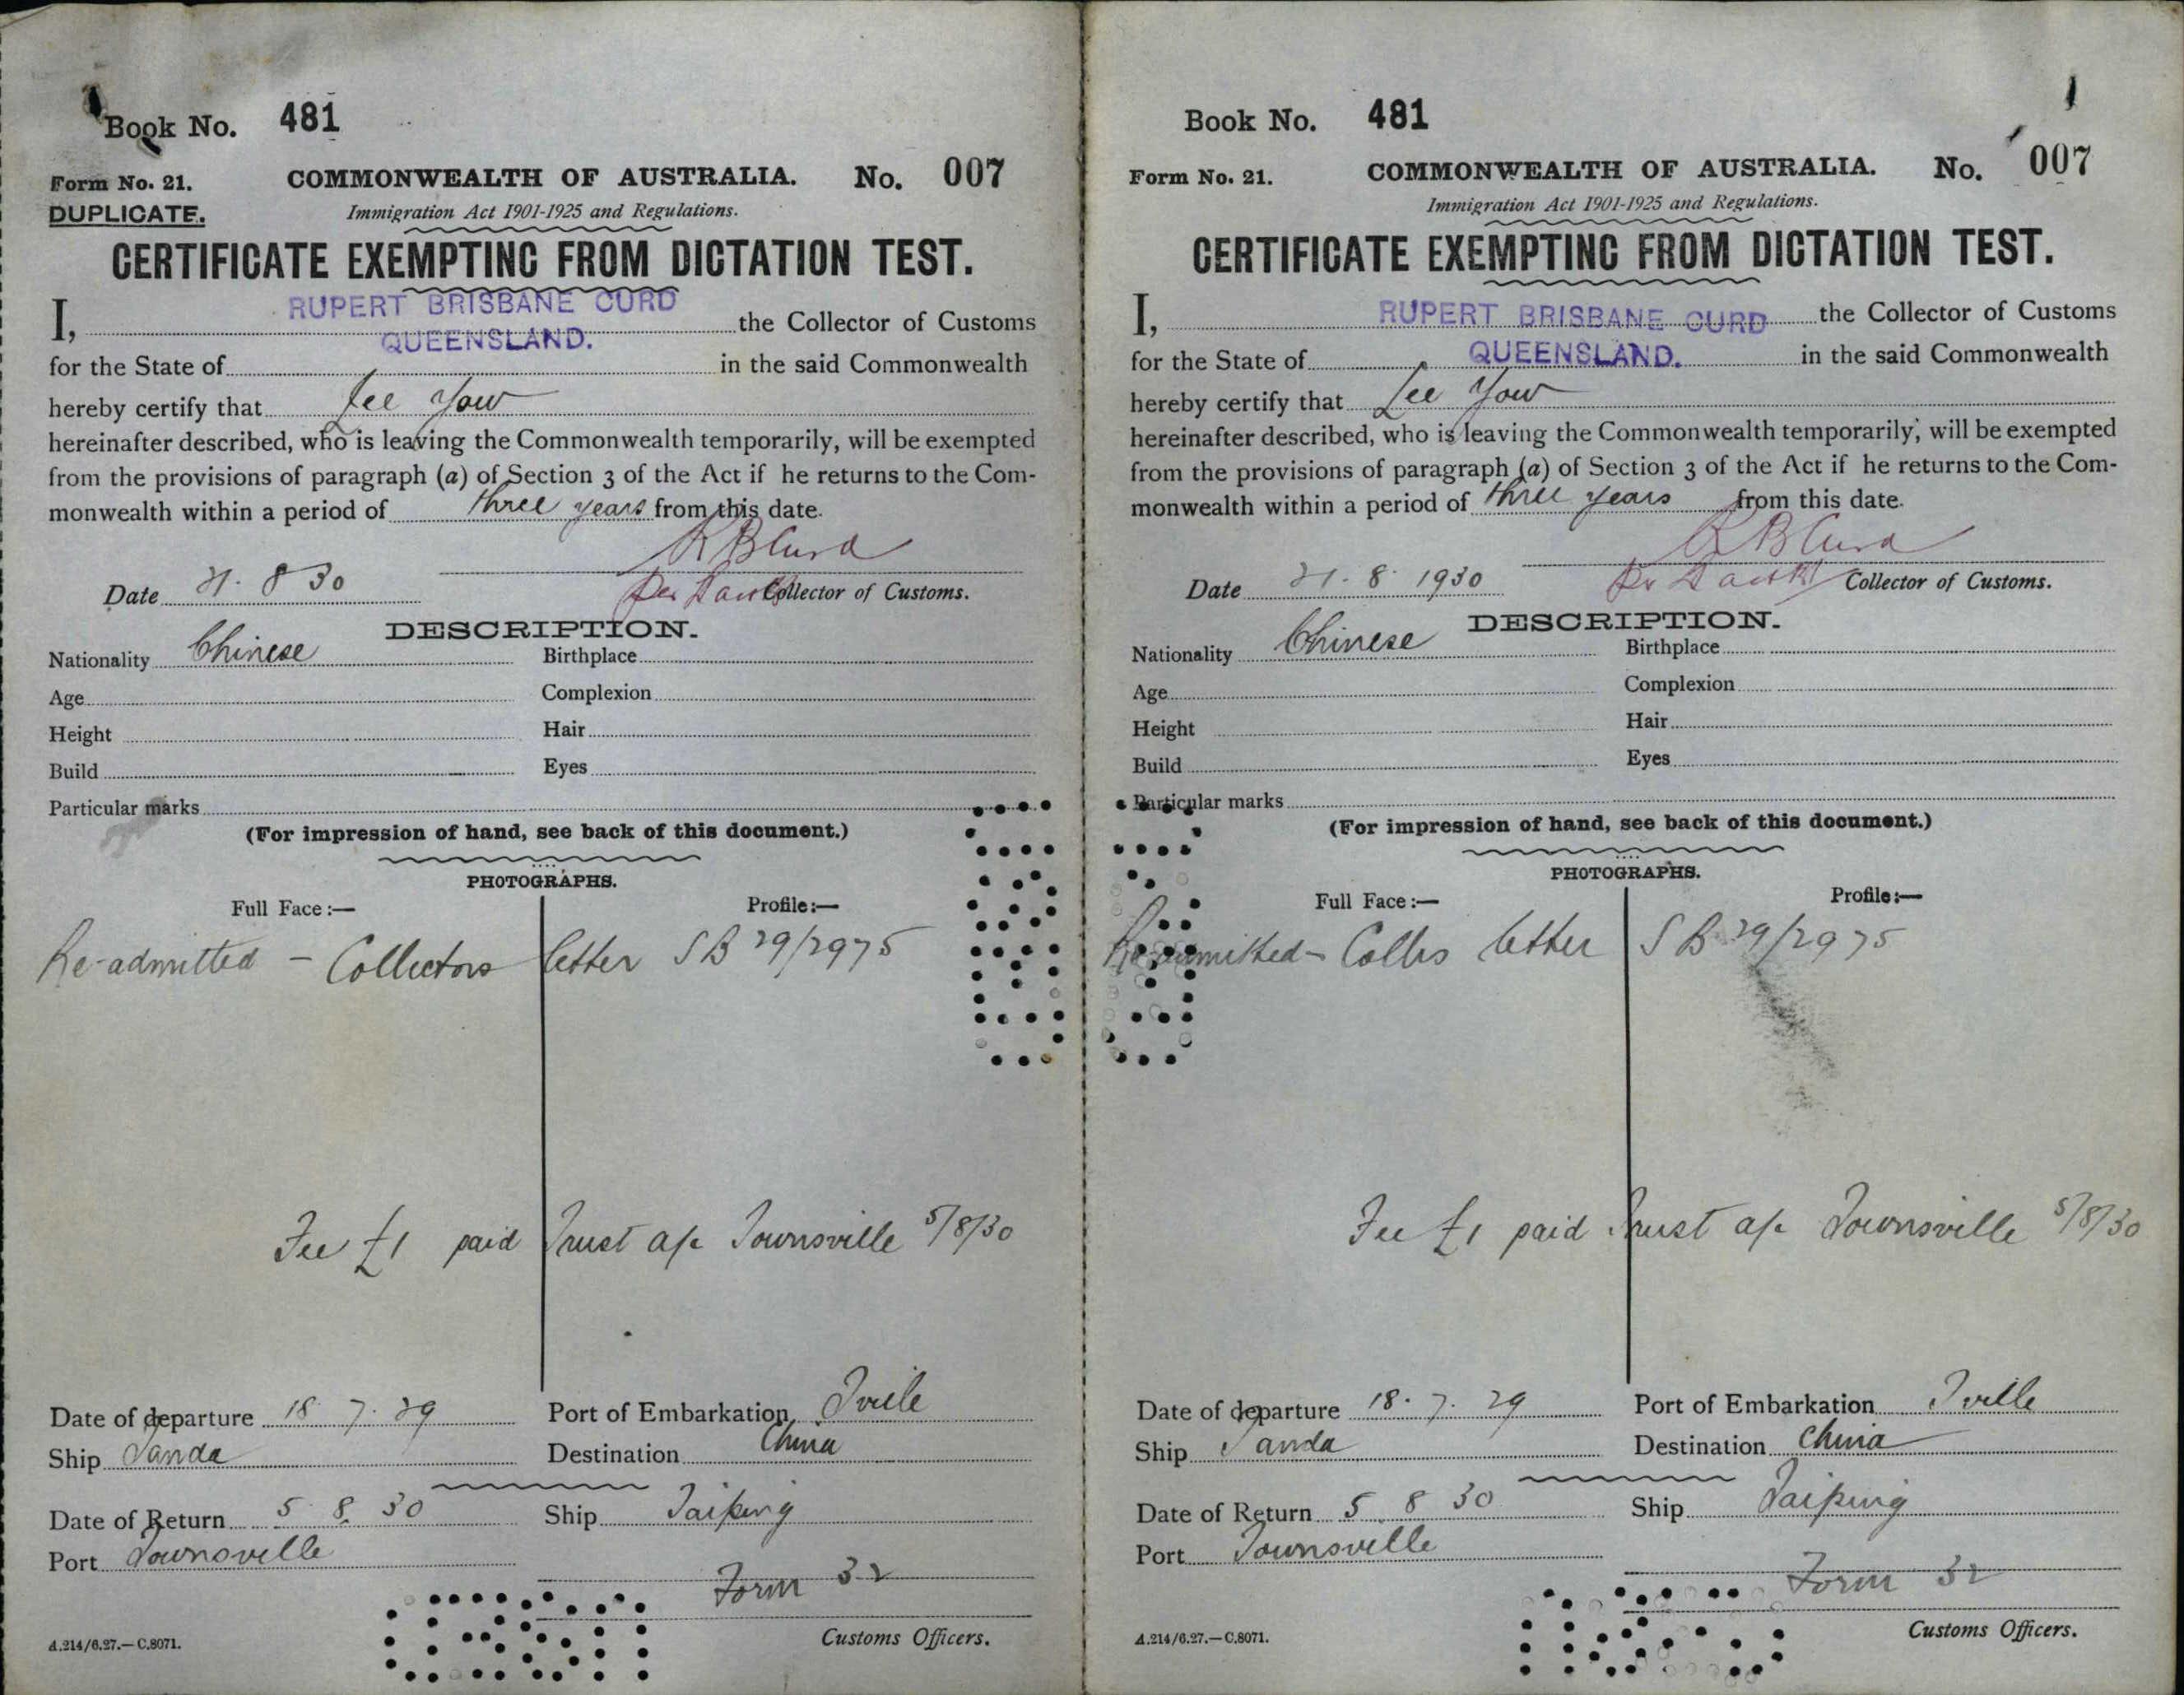 Book No. 481
Form No. 21.
COMMONWEALTH OF AUSTRALIA. No. 007
DUPLICATE.
Immigration Act 1901-1925 and Regulations.
CERTIFICATE EXEMPTING FROM DICTATION TEST.
I, RUPERT BRISBANE CURD the Collector of Customs
for the State of QUEENSLAND. in the said Commonwealth
hereby certify that Lee Yow
hereinafter described, who is leaving the Commonwealth temporarily, will be exempted
from the provisions of paragraph (a) of Section 3 of the Act if he returns to the Com-
monwealth within a period of three years from this date.
R B Curd
Date 21. 8 30 Per Collector of Customs.
DESCRIPTION.
Nationality Chinese Birthplace
Age Complexion
Height Hair
Build Eyes
Particular marks
(For impression of hand, see back of this document.)
PHOTOGRAPHS.
Full Face:— Profile:—
Re-admitted - Collectors letter SB 29/2975
Fee £1 paid Trust a/c Townsville 5/8/30
Date of departure 18 7. 29 Port of Embarkation Tville
Ship Tanda Destination China
Date of Return 5 8. 30 Ship Taiping
Port Townsville
Form 32
A.214/6.27.—C.8071. Customs Officers.
Book No. 481
Form No. 21. COMMONWEALTH OF AUSTRALIA. No. 007
Immigration Act 1901-1925 and Regulations.
CERTIFICATE EXEMPTING FROM DICTATION TEST.
I, RUPERT BRISBANE CURD the Collector of Customs
for the State of QUEENSLAND. in the said Commonwealth
hereby certify that Lee Yow
hereinafter described, who is leaving the Commonwealth temporarily, will be exempted
from the provisions of paragraph (a) of Section 3 of the Act if he returns to the Com-
monwealth within a period of three years from this date.
R B Curd
Date 21. 8. 1930 Pr Collector of Customs.
DESCRIPTION.
Nationality Chinese Birthplace
Age Complexion
Height Hair
Build Eyes
Particular marks
(For impression of hand, see back of this document.)
PHOTOGRAPHS.
Full Face:— Profile:—
Re-admitted - Collrs letter SB 29/2975
Fee £1 paid Trust a/c Townsville 5/8/30
Date of departure 18. 7. 29 Port of Embarkation Tville
Ship Tanda Destination China
Date of Return 5 8 30 Ship Taiping
Port Townsville
Form 32
A.214/6.27.—C.8071. Customs Officers.